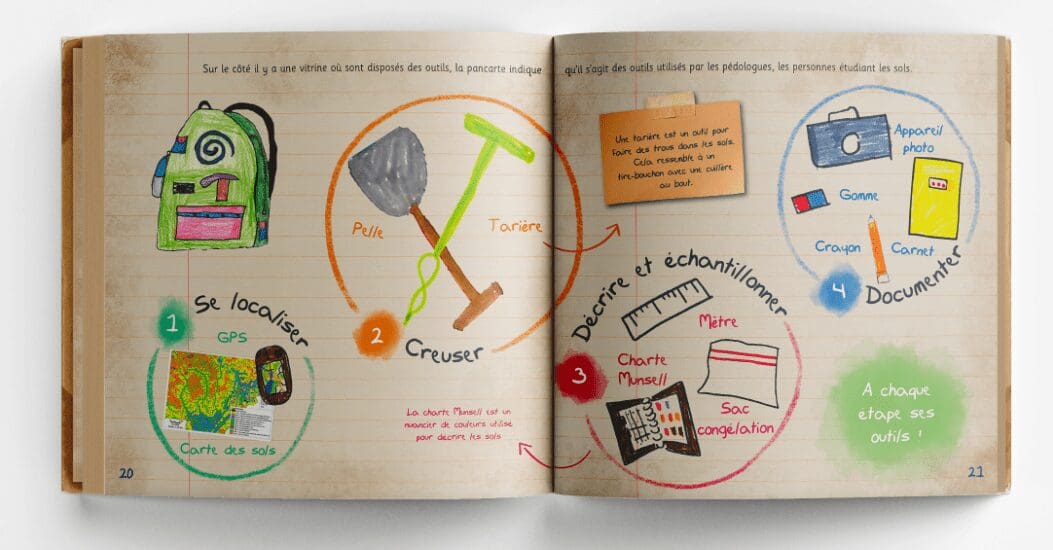 Sur le côté il y a une vitrine où sont disposés des outils, la pancarte indique
qu'il s'agit des outils utilisés par les pédologues, les personnes étudiant les sols.
1
Se localiser
GPS
Carte des sols
2
Creuser
Pelle
Tarière
Une tarière est un outil pour
faire des trous dans les sols.
Cela ressemble à un
tire-bouchon avec une cuillère
au bout.
La charte Munsell est un
nuancier de couleurs utilisé
pour décrire les sols
3
Décrire et échantillonner
Mètre
Charte
Munsell
Sac
congélation
4
Documenter
Appareil
photo
Gomme
Crayon
Carnet
A chaque
étape ses
outils !
20
21